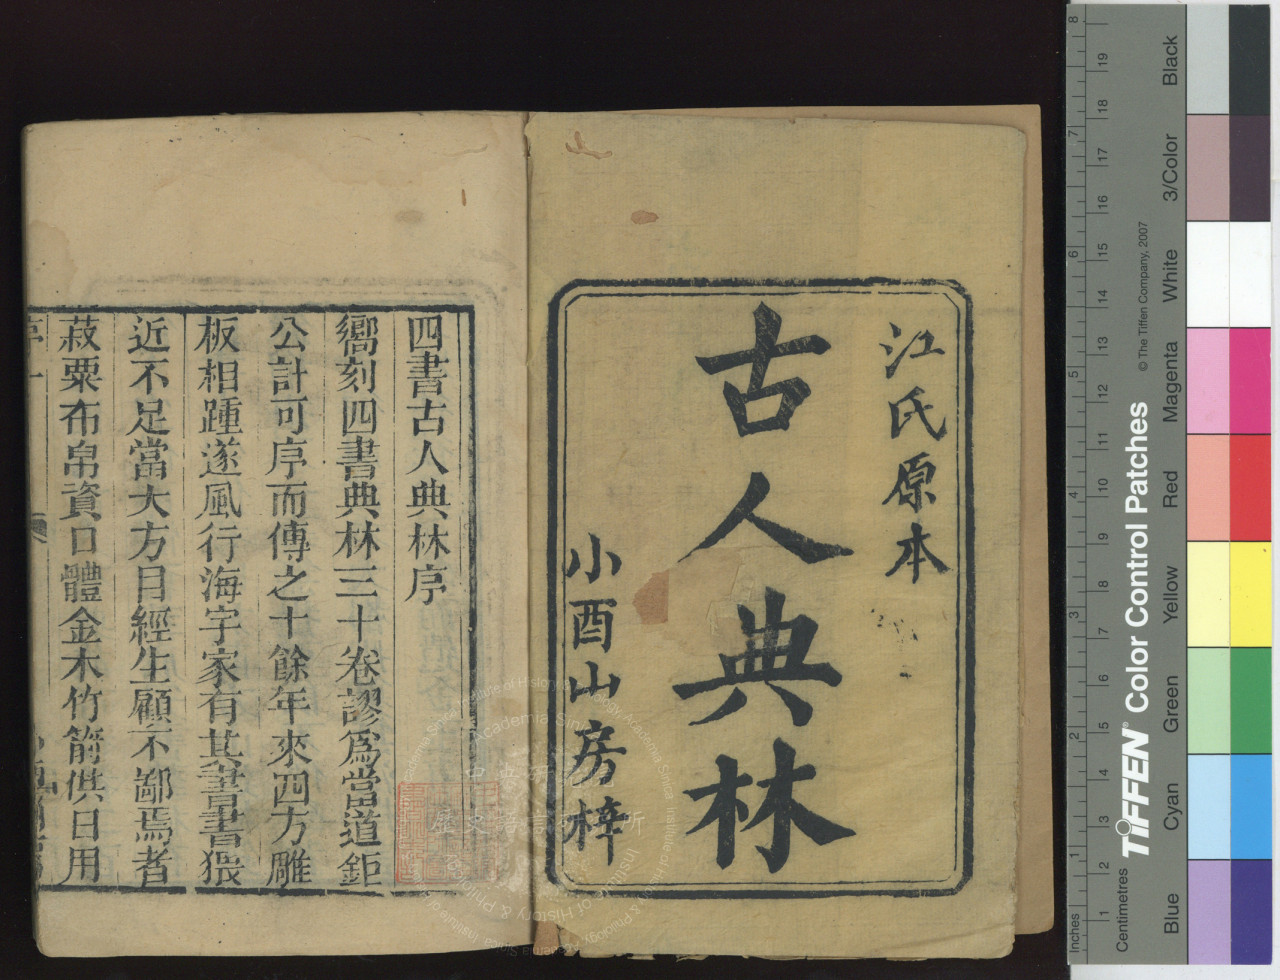 江氏原本
古人典林
小酉山房梓
四書古人典林序
嚮刻四書典林三十卷謬爲當道鉅
公計可序而傳之十餘年來四方雕
板相踵遂風行海宇家有其書書猥
近不足當大方目經生顧不鄙焉者
菽粟布帛資口體金木竹箭供日用
序一
8
7
6
5
4
3
2
1
Inches
19
18
17
16
15
14
13
12
11
10
9
8
7
6
5
4
3
2
1
Centimetres
TIFFEN® Color Control Patches
© The Tiffen Company, 2007
Black
3/Color
White
Magenta
Red
Yellow
Green
Cyan
Blue
Institute of History & Philology Academia Sinica